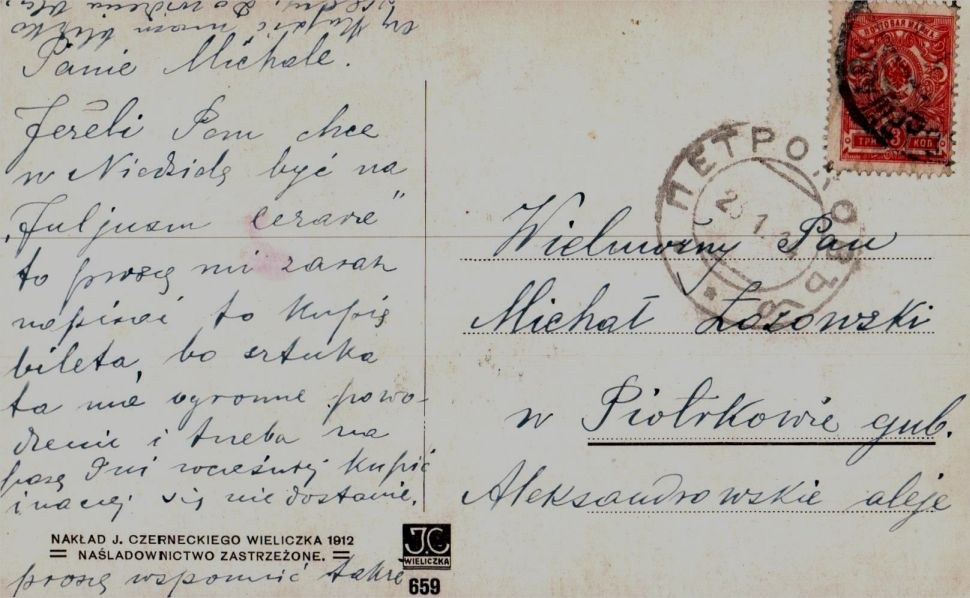 Panie Michale.
Jeżeli Pan chce
w Niedzielę być na
„Juljusza Cezara"
to proszę mi zaraz
napisać to kupię
bileta, bo sztuka
ta ma ogromne powo-
dzenie i trzeba na
parę dni wcześniej kupić
inaczej się nie dostanie.
proszę wspomnić także
NAKŁAD J. CZERNECKIEGO WIELICZKA 1912
NAŚLADOWNICTWO ZASTRZEŻONE.
J.C.
WIELICZKA
659
ПОЧТОВАЯ МАРКА
ТРИ 3 КОП
ПЕТРОКОВЪ
Wielmożny Pan
Michał Łazowski
w Piotrkowie gub.
Aleksandrowskie aleje